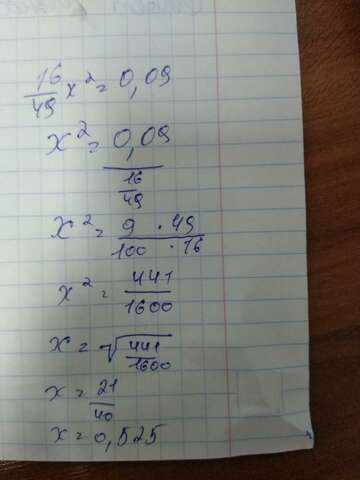 16/49 x² = 0,09
x² = 0,09 / 16/49
x² = 9 · 49 / 100 · 16
x² = 441/1600
x = √441/1600
x = 21/40
x = 0,525